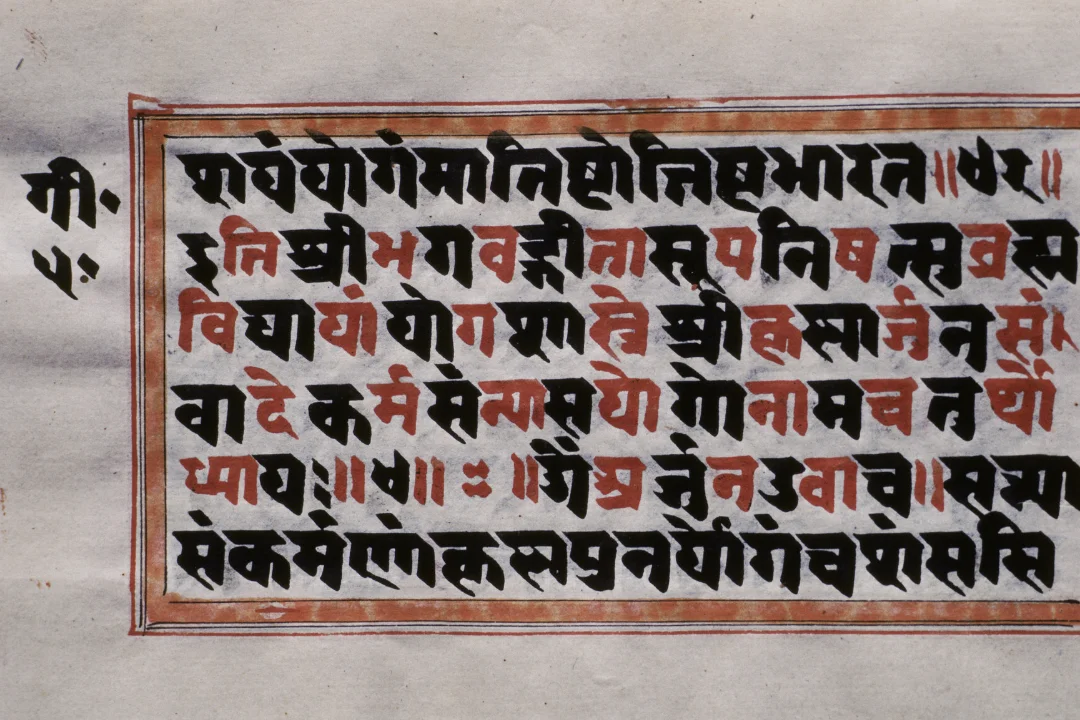 गी॰
५ः
शयंयोगंमातिष्टोत्तिष्टभारत॥४२॥
इतिश्रीभगवद्गीतासूपनिषत्सुब्रह्म
विद्यायांयोगशास्त्रेश्रीकृष्णार्जुनसं
वादेकर्मसंन्यासयोगोनामचतुर्थो
ध्यायः॥४॥ः॥ॐअर्जुनउवाच॥सन्न्या
संकर्मणांकृष्णपुनर्योगंचशंससि